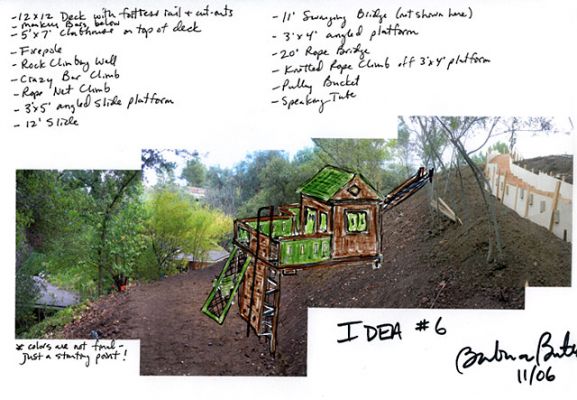 - 12x12 Deck with fortress rail + cut-outs
- monkey Bars below
- 5'x7' Clubhouse on top of deck
- Firepole
- Rock Climbing Wall
- Crazy Bar Climb
- Rope Net Climb
- 3'x5' angled slide platform
- 12' Slide
- 11' Swinging Bridge (not shown here)
- 3'x4' angled platform
- 20' Rope Bridge
- Knotted Rope Climb off 3'x4' platform
- Pulley Bucket
- Speaking Tube
* colors are not final -
just a starting point!
IDEA #6
Barbara Butler
11/06